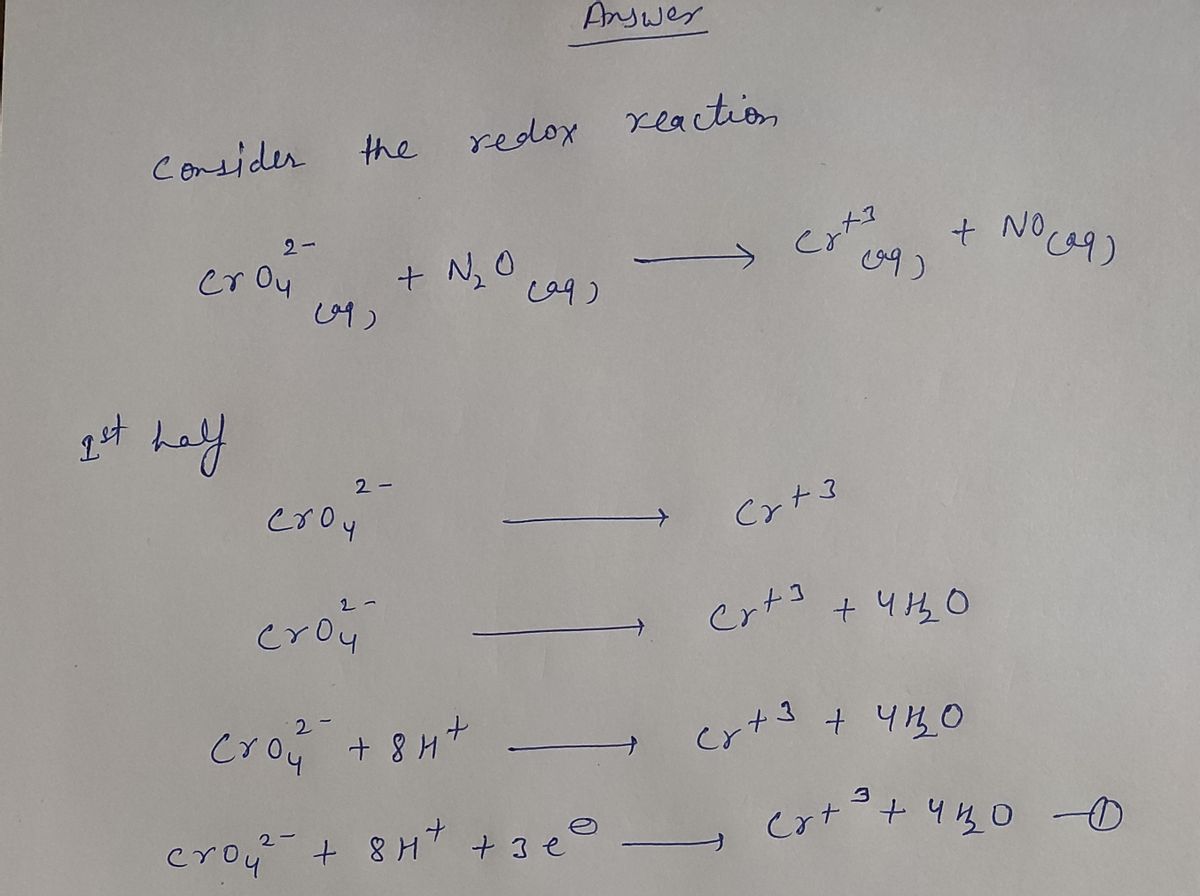 Answer
Consider the redox reaction
CrO₄²⁻(aq) + N₂O(aq) ⟶ Cr⁺³(aq) + NO(aq)
1st half
CrO₄²⁻ ⟶ Cr⁺³
CrO₄²⁻ ⟶ Cr⁺³ + 4H₂O
CrO₄²⁻ + 8H⁺ ⟶ Cr⁺³ + 4H₂O
CrO₄²⁻ + 8H⁺ + 3e⊖ ⟶ Cr⁺³ + 4H₂O —①